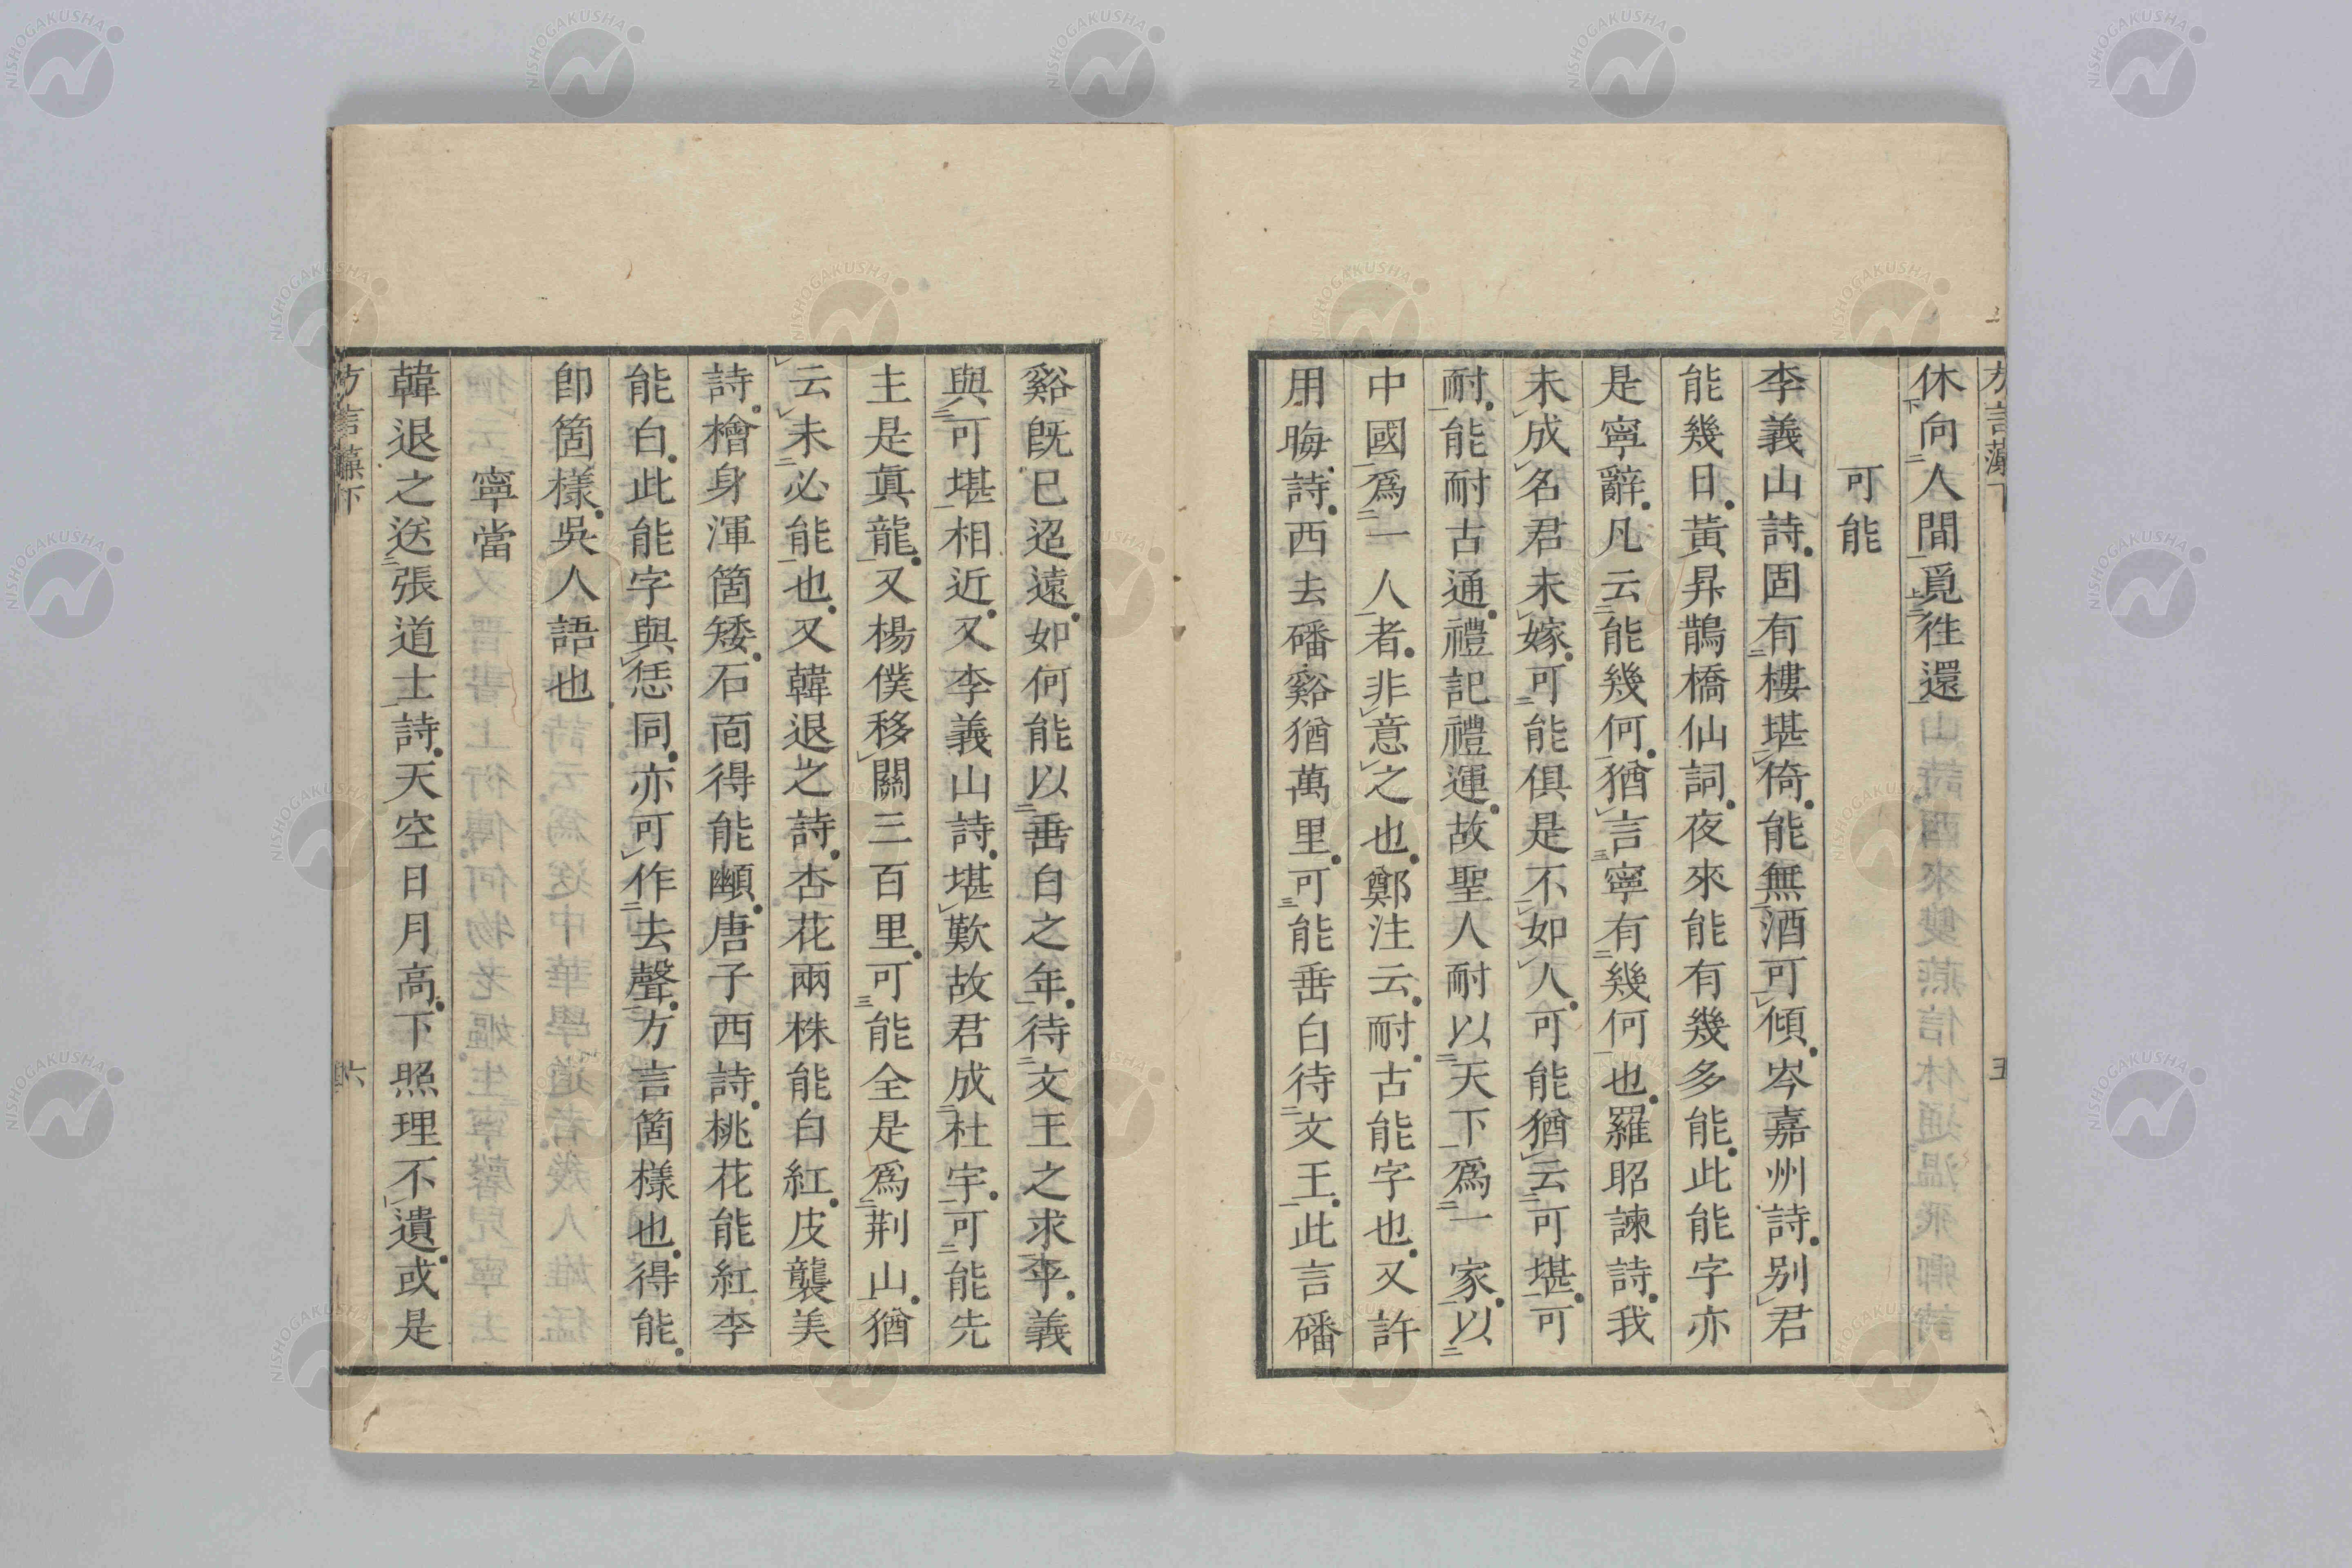 休向人間覓徃還
可能
李義山詩固有樓堪倚能無酒可傾岑嘉州詩別君
能幾日黃昇鵲橋仙詞夜來能有幾多能此能字亦
是寧辭凡云能幾何猶言寧有幾何也羅昭諫詩我
未成名君未嫁可能俱是不如人可能猶云可堪可
耐能耐古通禮記禮運故聖人耐以天下爲一家以
中國爲一人者非意之也鄭注云耐古能字也又許
用晦詩西去磻谿猶萬里可能垂白待文王此言磻
谿旣已迢遠如何能以垂白之年待文王之求乎義
與可堪相近又李義山詩堪歎故君成杜宇可能先
主是眞龍又楊僕移關三百里可能全是爲荆山猶
云未必能也又韓退之詩杏花兩株能白紅皮襲美
詩檜身渾箇矮石面得能顑唐子西詩桃花能紅李
能白此能字與恁同亦可作去聲方言箇樣也得能
卽箇樣吳人語也
寧當
韓退之送張道士詩天空日月高下照理不遺或是
方言藻下
六
NISHOGAKUSHA